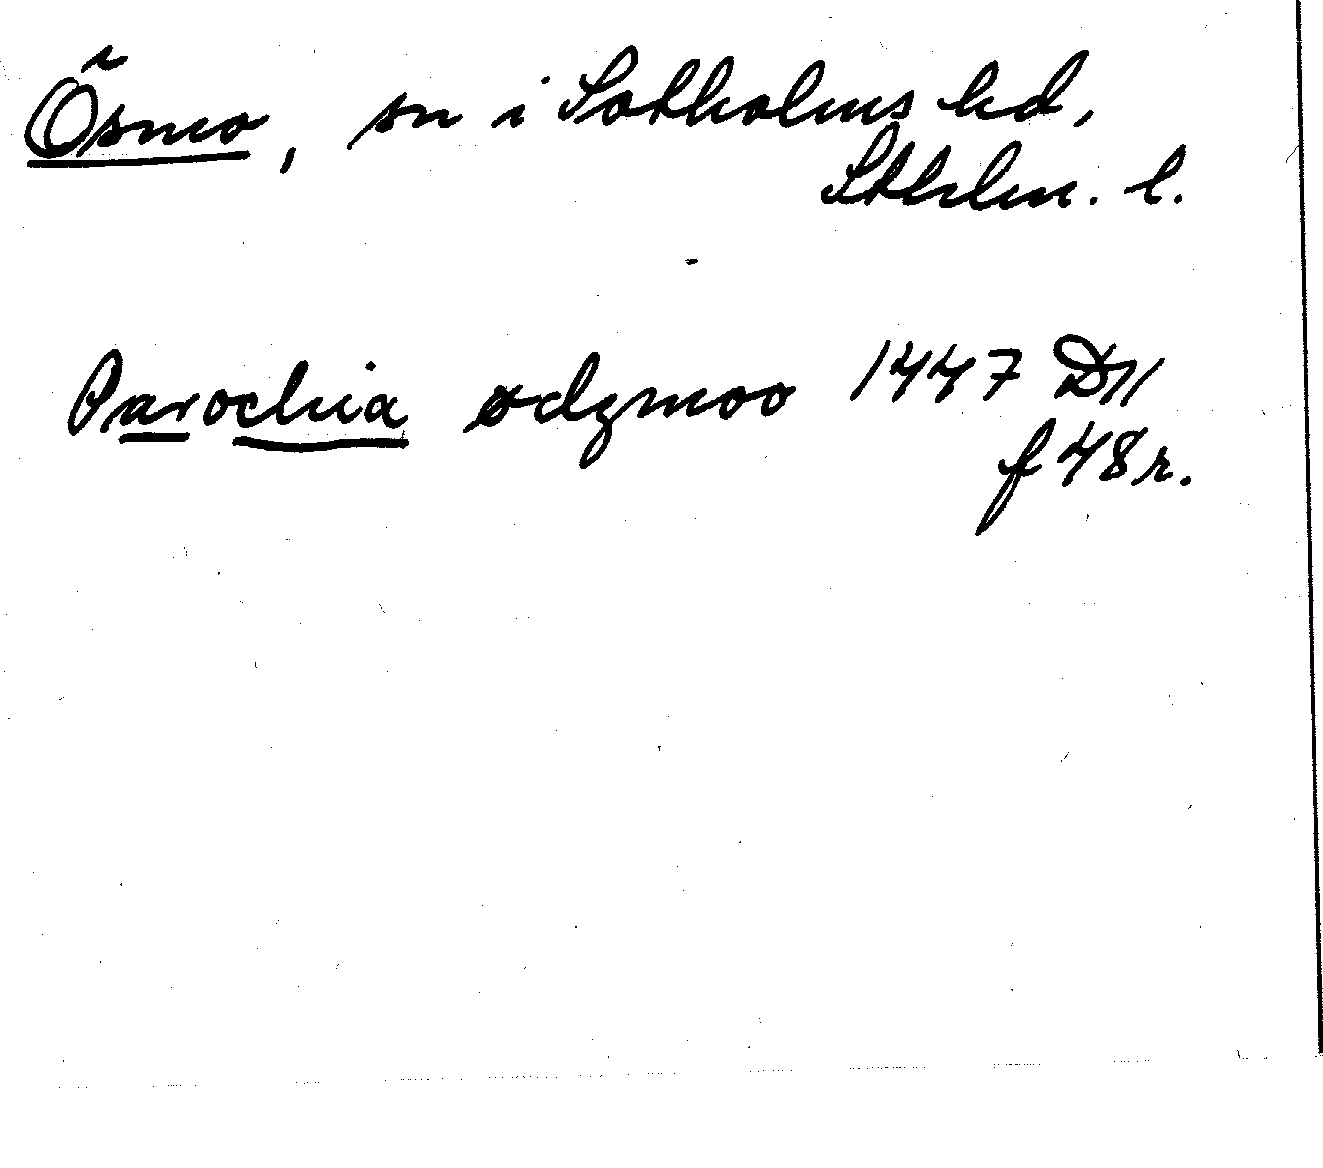 Ösmo, sn i Sotholms hd,
Sthlm. l.
Parochia ødzmoo 1447 D11
f 48r.